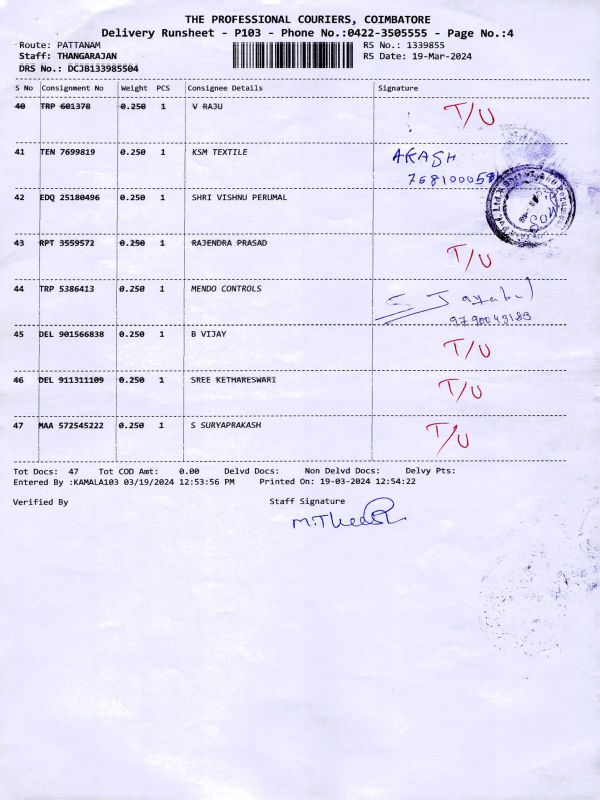 THE PROFESSIONAL COURIERS, COIMBATORE
Delivery Runsheet - P103 - Phone No.:0422-3505555 - Page No.:4
Route: PATTANAM RS No.: 1339855
Staff: THANGARAJAN RS Date: 19-Mar-2024
DRS No.: DCJB133985504
S No Consignment No Weight PCS Consignee Details Signature
40 TRP 601378 0.250 1 V RAJU T/U
41 TEN 7699819 0.250 1 KSM TEXTILE AKASH
42 EDQ 25180496 0.250 1 SHRI VISHNU PERUMAL
43 RPT 3559572 0.250 1 RAJENDRA PRASAD T/U
44 TRP 5386413 0.250 1 MENDO CONTROLS
9790043183
45 DEL 901566838 0.250 1 B VIJAY T/U
46 DEL 911311109 0.250 1 SREE KETHARESWARI T/U
47 MAA 572545222 0.250 1 S SURYAPRAKASH T/U
Tot Docs: 47 Tot COD Amt: 0.00 Delvd Docs: Non Delvd Docs: Delvy Pts:
Entered By :KAMALA103 03/19/2024 12:53:56 PM Printed On: 19-03-2024 12:54:22
Verified By Staff Signature